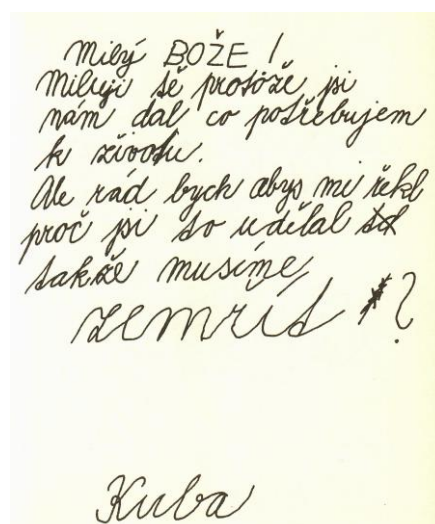 Milý BOŽE !
Miluji tě protože jsi
nám dal co potřebujem
k životu.
Ale rád bych abys mi řekl
proč jsi to udělal
takže musíme
zemřít ?
Kuba